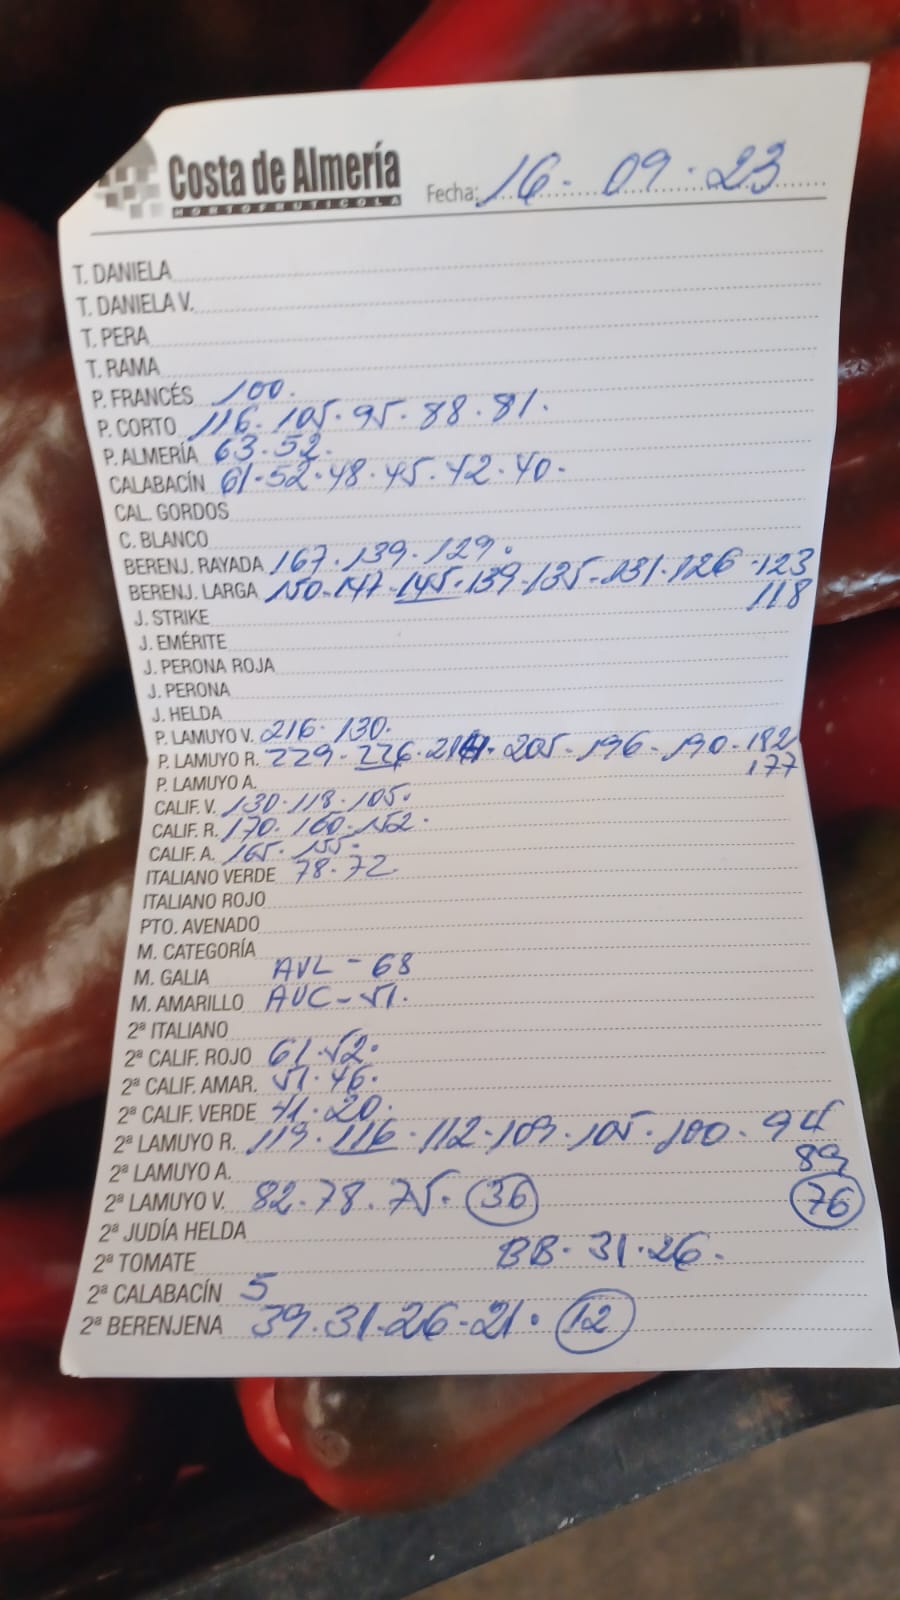 Costa de Almería
HORTOFRUTICOLA
Fecha: 16 - 09 - 23
T. DANIELA
T. DANIELA V.
T. PERA
T. RAMA
P. FRANCÉS 100.
P. CORTO 116. 105. 95. 88. 81.
P. ALMERÍA 63. 52.
CALABACÍN 61. 52. 48. 45. 42. 40.
CAL. GORDOS
C. BLANCO
BERENJ. RAYADA 167. 139. 129.
BERENJ. LARGA 150. 147. 145. 139. 135. 131. 126. 123
118
J. STRIKE
J. EMÉRITE
J. PERONA ROJA
J. PERONA
J. HELDA
P. LAMUYO V. 216. 130.
P. LAMUYO R. 229. 226. 205. 196. 190. 182
177
P. LAMUYO A.
CALIF. V. 130. 118. 105.
CALIF. R. 170. 160. 152.
CALIF. A. 165. 155.
ITALIANO VERDE 78. 72.
ITALIANO ROJO
PTO. AVENADO
M. CATEGORÍA
M. GALIA AVL - 68
M. AMARILLO AUC - 51.
2ª ITALIANO
2ª CALIF. ROJO 61. 52.
2ª CALIF. AMAR. 51. 46.
2ª CALIF. VERDE 41. 20.
2ª LAMUYO R. 119. 116. 112. 109. 105. 100. 94
89
2ª LAMUYO A.
2ª LAMUYO V. 82. 78. 75. 36 76
2ª JUDÍA HELDA
2ª TOMATE BB. 31. 26.
2ª CALABACÍN 5
2ª BERENJENA 39. 31. 26. 21. 12